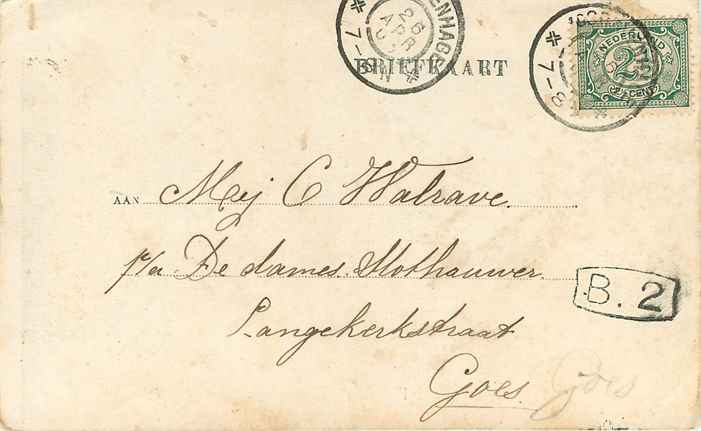 BRIEFKAART
NEDERLAND
2½ CENT
26
APR
7-8 N
7-8
AAN Mej C Walrave.
p/a De dames. Slothouwer.
Langekerkstraat
Goes. Goes
B. 2